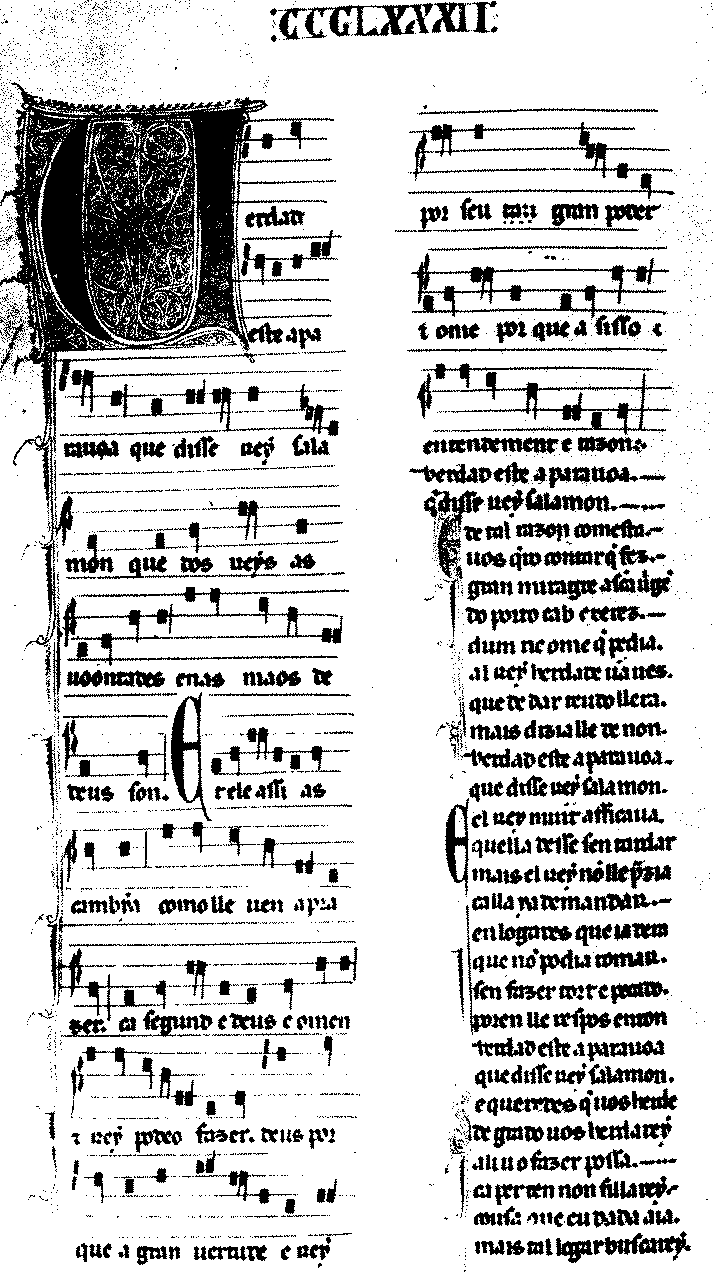 CCCLXXXII
erdade
este apa
rauoa que disse rey sala
mon que dos reys as
uoontades enas maos de
deus son. E rele assi as
cambia como lle uen a pra
zer. ca segund e deus e omen
τ rey podeo fazer. deus por
que a gran uertude e rey
por seu gran poder
τ ome por que a sisso τ
entendement e razon
verdad este a parauoa.
q̇ disse rey salamon.
de tal razon com esta.
uos q̇ro contar q̇ fez.
gran miragre
dum ric ome q̇ pedia.
al rey herdade
que de dar teudo llera.
mais dizialle de non.
verdad este a parauoa.
que disse rey salamon.
E el rey muit afficaua.
quella desse sen tardar
mais el rey nō lle
calla ya demandar.
en logares que ia dem
que nō podia tomar.
sen fazer tort e
poren lle respos enton
verdad este a parauoa
que disse rey salamon.
e queredes q̇ uos herde
de grado uos herdarey
aliu o fazer possa.
ca per ren non fillarey.
cousa que eu dada aia.
mais tal logar buscarey.